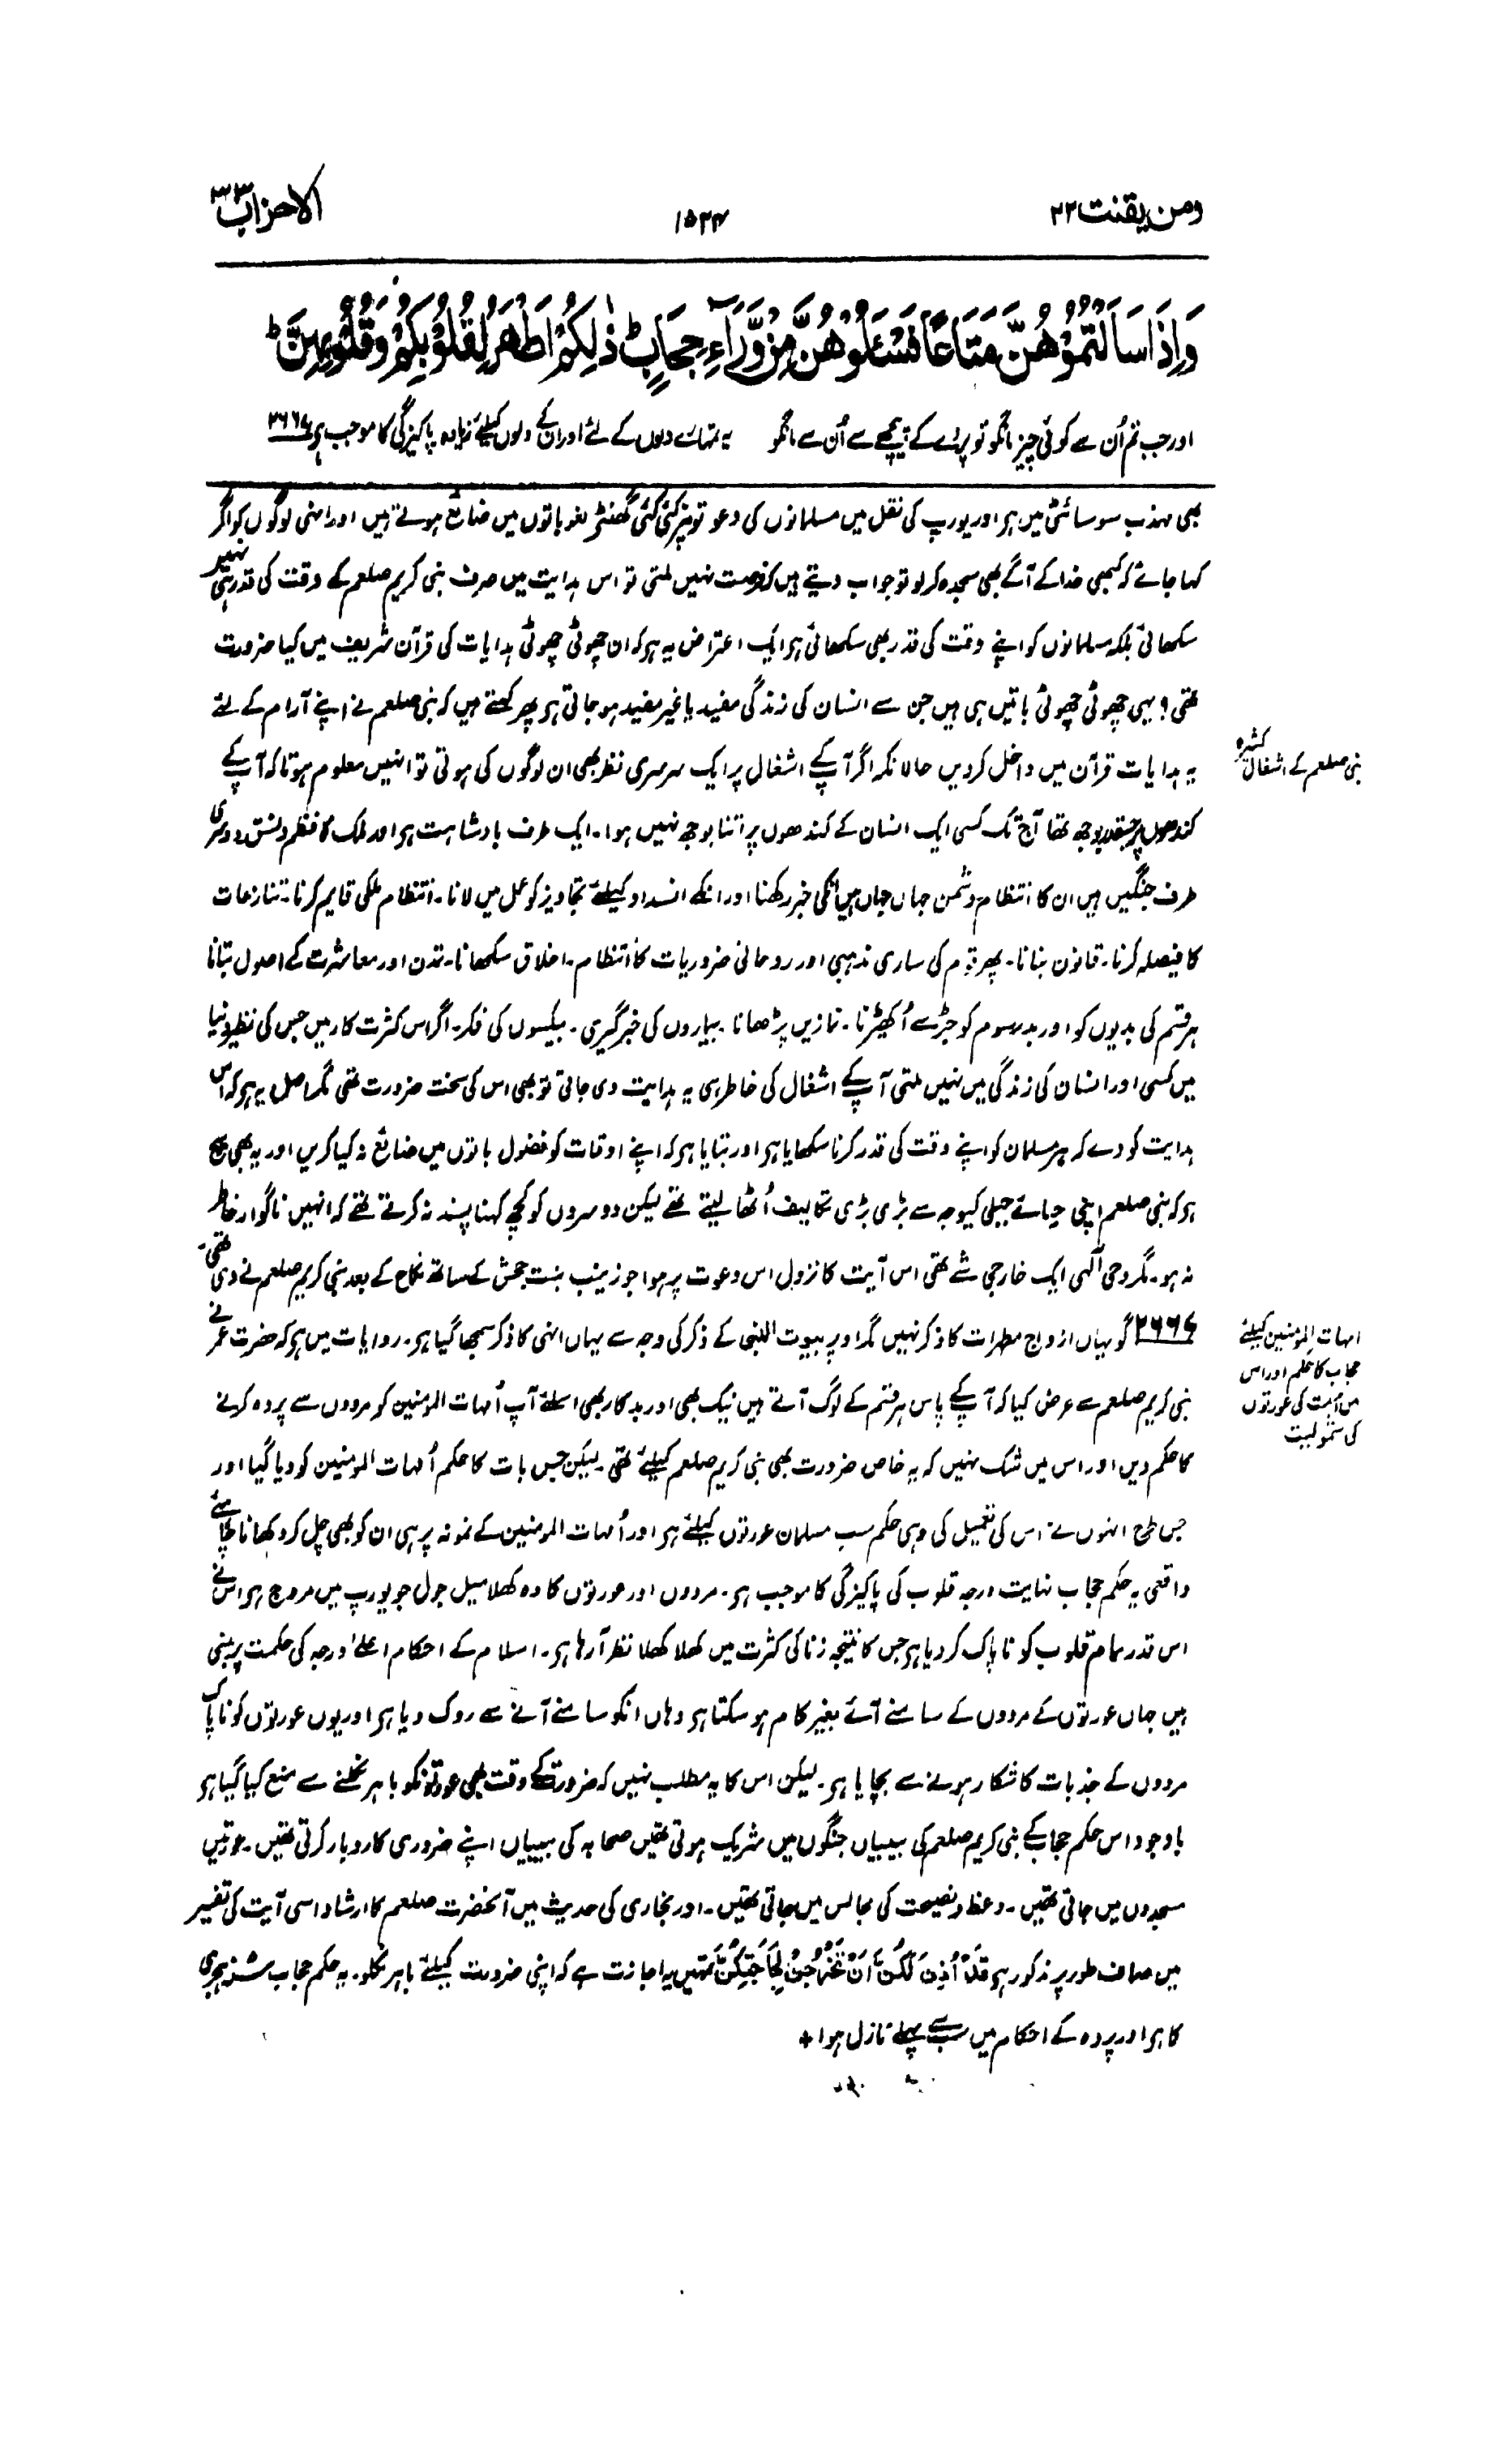 ومن یقنت ۲۲
۱۵۲۴
الاحزاب ۳۳
وَاِذَا سَاَلْتُمُوْهُنَّ مَتَاعًا فَسْـَٔلُوْهُنَّ مِنْ وَّرَآءِ حِجَابٍ ؕ ذٰلِكُمْ اَطْهَرُ لِقُلُوْبِكُمْ وَ قُلُوْبِهِنَّ ؕ
اور جب تم اُن سے کوئی چیز مانگو تو پردے کے پیچھے سے اُن سے مانگو یہ تمہارے دلوں کے لئے اور ان کے دلوں کیلئے زیادہ پاکیزگی کا موجب ہو ۲۶۶۷
بھی مہذب سوسائٹی میں ہو اور یورپ کی نقل میں مسلمانوں کی دعوتو نپر کئی کئی گھنٹے لغو باتوں میں ضائع ہوتے ہیں اور انہی لوگوں کو اگر
کہا جائے کہ کبھی خدا کے آگے بھی سجدہ کر لو تو جواب دیتے ہیں کہ فرصت نہیں ملتی تو اس ہدایت میں صرف نبی کریم صلعم کے وقت کی قدر ہی نہیں
سکھائی بلکہ مسلمانوں کو اپنے وقت کی قدر بھی سکھائی ہو ایک اعتراض یہ ہو کہ ان چھوٹی چھوٹی ہدایات کی قرآن شریف میں کیا ضرورت
تھی؟ یہی چھوٹی چھوٹی باتیں ہی ہیں جن سے انسان کی زندگی مفید یا غیر مفید ہو جاتی ہو پھر کہتے ہیں کہ نبی صلعم نے اپنے آرام کے لئے
یہ ہدایات قرآن میں داخل کردیں حالانکہ اگر آپ کے اشغال پر ایک سرسری نظر بھی ان لوگوں کی ہوتی تو انہیں معلوم ہوتا کہ آپ کے
نبی صلعم کے اشغال کثیرہ
کندھوں پر جسقدر بوجھ تھا آج تک کسی ایک انسان کے کندھوں پر اتنا بوجھ نہیں ہوا۔ ایک طرف بادشاہت ہو اور ملک کا نظم و نسق دوسری
طرف جنگیں ہیں ان کا انتظام دشمن جہاں جہاں ہیں انکی خبر رکھنا اور انکے انسداد کیلئے تجاویز کو عمل میں لانا۔ انتظام ملکی قایم کرنا۔ تنازعات
کا فیصلہ کرنا۔ قانون بنانا۔ پھر قوم کی ساری مذہبی اور روحانی ضروریات کا انتظام۔ اخلاق سکھانا۔ تمدن اور معاشرت کے اصول بتانا
ہر قسم کی بدیوں کو اور بد رسوم کو جڑ سے اُکھیڑنا۔ نمازیں پڑھانا۔ بیماروں کی خبرگیری۔ بیکسوں کی فکر۔ اگر اس کثرت کار میں جس کی نظیر دنیا
میں کسی اور انسان کی زندگی میں نہیں ملتی آپ کے اشغال کی خاطر ہی یہ ہدایت دی جاتی تو بھی اس کی سخت ضرورت تھی مگر اصل یہ ہو کہ اس
ہدایت کو دے کر ہر مسلمان کو اپنے وقت کی قدر کرنا سکھایا ہو اور بتایا ہو کہ اپنے اوقات کو فضول باتوں میں ضائع نہ کیا کریں اور یہ بھی سچ
ہو کہ نبی صلعم اپنی حیائے جبلی کیوجہ سے بڑی بڑی تکالیف اُٹھا لیتے تھے لیکن دوسروں کو کچھ کہنا پسند نہ کرتے تھے کہ انہیں ناگوار خاطر
نہ ہو۔ مگر وحی الٰہی ایک خارجی شے تھی اس آیت کا نزول اس دعوت پر ہوا جو زینب بنت جحش کے ساتھ نکاح کے بعد نبی کریم صلعم نے دی تھی۔
۲۶۶۷ گو یہاں ازواج مطہرات کا ذکر نہیں مگر اوپر بیوت النبی کے ذکر کی وجہ سے یہاں انہی کا ذکر سمجھا گیا ہو۔ روایات میں ہو کہ حضرت عمر نے
امہات المومنین کیلئے
حجاب کا حکم اور اس
میں اُمت کی عورتوں
کی شمولیت
نبی کریم صلعم سے عرض کیا کہ آپ کے پاس ہر قسم کے لوگ آتے ہیں نیک بھی اور بدکار بھی اسلئے آپ اُمہات المومنین کو مردوں سے پردہ کرنے
کا حکم دیں اور اس میں شک نہیں کہ یہ خاص ضرورت بھی نبی کریم صلعم کیلئے تھی۔ لیکن جس بات کا حکم اُمہات المومنین کو دیا گیا اور
جس طرح انہوں نے اس کی تعمیل کی وہی حکم سب مسلمان عورتوں کیلئے ہو اور اُمہات المومنین کے نمونہ پر ہی ان کو بھی چل کر دکھانا چاہئے
واقعی یہ حکم حجاب نہایت درجہ قلوب کی پاکیزگی کا موجب ہو۔ مردوں اور عورتوں کا وہ کھلا میل جول جو یورپ میں مروج ہو اس نے
اس قدر تمام قلوب کو ناپاک کر دیا ہو جس کا نتیجہ زنا کی کثرت میں کھلا کھلا نظر آرہا ہو۔ اسلام کے احکام اعلےٰ درجہ کی حکمت پر مبنی
ہیں جہاں عورتوں کے مردوں کے سامنے آئے بغیر کام ہو سکتا ہو وہاں انکو سامنے آنے سے روک دیا ہو اور یوں عورتوں کو ناپاک
مردوں کے جذبات کا شکار ہونے سے بچایا ہو۔ لیکن اس کا یہ مطلب نہیں کہ ضرورت کے وقت بھی عورتونکو باہر نکلنے سے منع کیا گیا ہو
باوجود اس حکم حجاب کے نبی کریم صلعم کی بیبیاں جنگوں میں شریک ہوتی تھیں صحابہ کی بیبیاں اپنے ضروری کاروبار کرتی تھیں۔ عورتیں
مسجدوں میں جاتی تھیں۔ وعظ و نصیحت کی مجالس میں جاتی تھیں۔ اور بخاری کی حدیث میں آنحضرت صلعم کا ارشاد اسی آیت کی تفسیر
میں صاف طور پر مذکور ہو قَدْ اُذِنَ لَكُنَّ اَنْ تَخْرُجْنَ لِحَاجَتِكُنَّ تمہیں یہ اجازت ہے کہ اپنی ضرورت کیلئے باہر نکلو۔ یہ حکم حجاب ہجری
کا ہو اور پردہ کے احکام میں سب سے پہلے نازل ہوا +